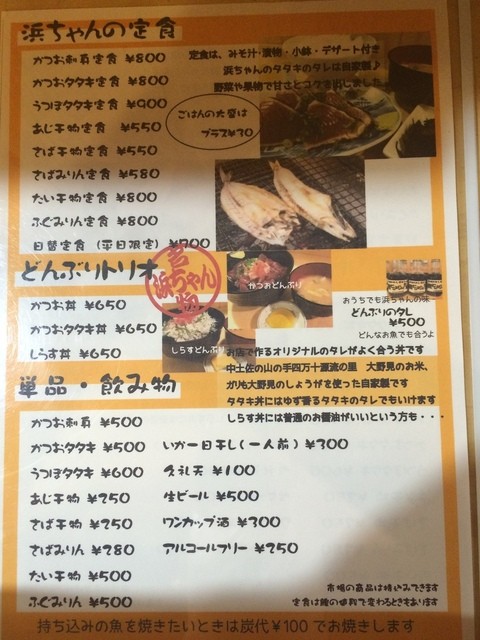 浜ちゃんの定食
かつお刺身定食 ¥800
かつおタタキ定食 ¥800
うつぼタタキ定食 ¥900
あじ干物定食 ¥550
さば干物定食 ¥550
さばみりん定食 ¥580
たい干物定食 ¥800
ふぐみりん定食 ¥800
日替定食（平日限定）¥700
定食は、みそ汁・漬物・小鉢・デザート付き
浜ちゃんのタタキのタレは自家製♪
野菜や果物で甘さとコクを出しました
ごはんの大盛は
プラス¥30
どんぶりトリオ
浜ちゃん
かつお丼 ¥650
かつおタタキ丼 ¥650
しらす丼 ¥650
かつおどんぶり
しらすどんぶり
おうちでも浜ちゃんの味
どんぶりのタレ
¥500
どんなお魚でも合うよ
お店で作るオリジナルのタレがよく合う丼です
中土佐の山の手四万十源流の里 大野見のお米、
大野見のしょうがを使った自家製です
タタキ丼にはゆず香るタタキのタレでもいけます
しらす丼には普通のお醤油がいいという方も・・・
単品・飲み物
かつお刺身 ¥500
かつおタタキ ¥500
うつぼタタキ ¥600
あじ干物 ¥250
さば干物 ¥250
さばみりん ¥280
たい干物 ¥500
ふぐみりん ¥500
いか一日干し（一人前）¥300
久礼天 ¥100
生ビール ¥500
ワンカップ酒 ¥300
アルコールフリー ¥250
市場の商品は持込みできます
定食は魚の値段で変わるときもあります
持ち込みの魚を焼きたいときは炭代¥100でお焼きします